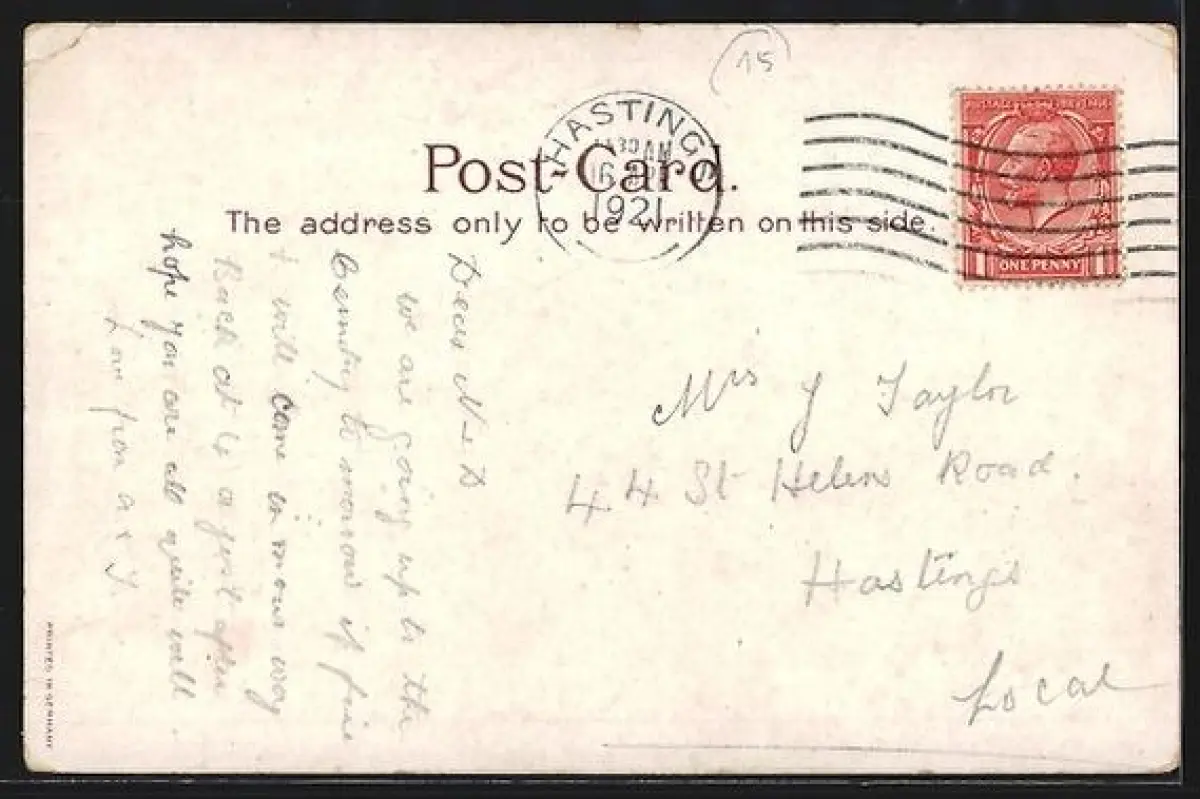 15
HASTINGS
30 AM
16
1921
POSTAGE REVENUE
1 ONE PENNY 1
Post-Card.
The address only to be written on this side.
Dear N & D
we are going up to the
Cemitry to morrow if fine
I will come in on our way
Back at 4 a just after
hope you are all quite well.
Love from a x J.
Mrs J Taylor
44 St Helens Road.
Hastings
Local
PRINTED IN GERMANY